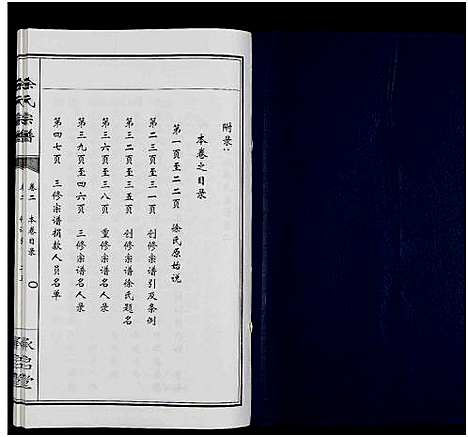 附录：
本卷之目录
第一页至二二页 徐氏原始说
第二三页至三一页 创修宗谱引及条例
第三二页至三五页 创修宗谱徐氏题名
第三六页至三八页 重修宗谱名人录
第三九页至四六页 三修宗谱名人录
第四七页 三修宗谱捐款人员名单
徐氏宗谱
卷二 本卷目录 〇